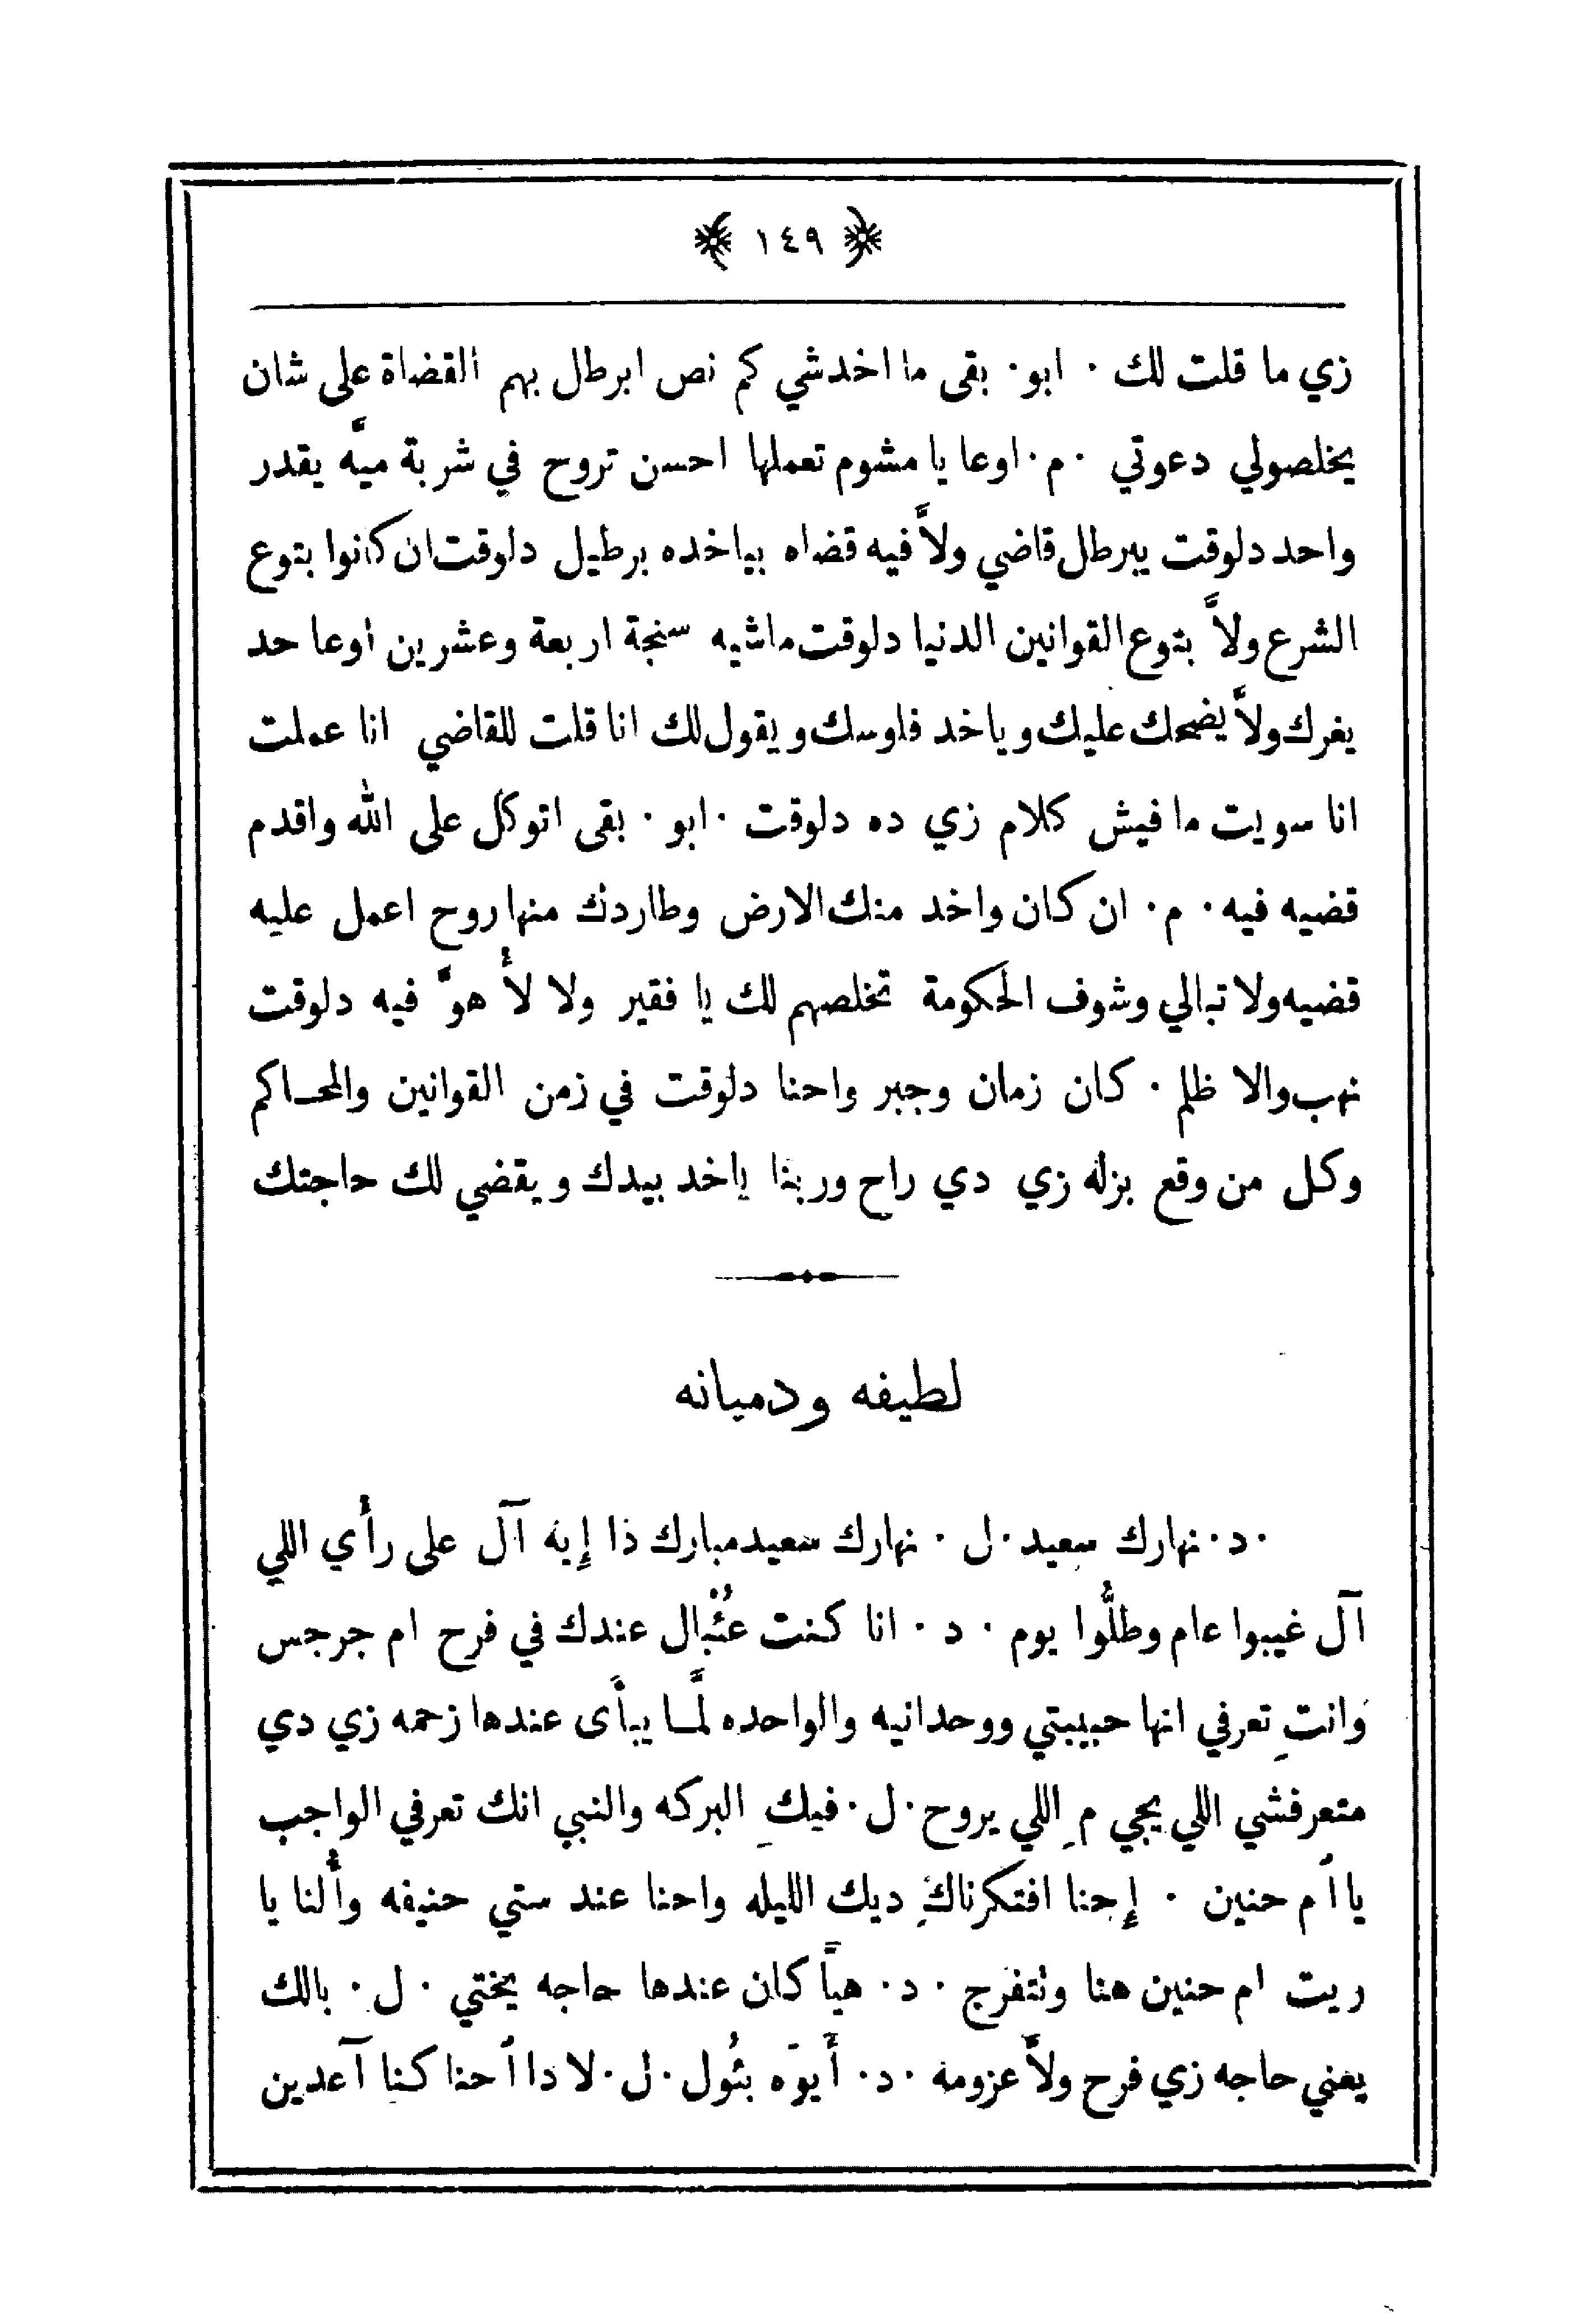 ١٤٩
زي ما قلت لك ٠ ابو ٠ بقى ما اخدشي كم نص ابرطل بهم القضاة على شان
يخلصولي دعوتي ٠ م ٠ اوعا يا مشوم تعملها احسن تروح في شربة ميَّه يقدر
واحد دلوقت يبرطل قاضي ولاَّ فيه قضاه بياخده برطيل دلوقت ان كانوا بتوع
الشرع ولاَّ بتوع القوانين الدنيا دلوقت ماشيه سنجة اربعة وعشرين اوعا حد
يغرك ولاَّ يضحك عليك وياخد فلوسك ويقول لك انا قلت للقاضي انا عملت
انا سويت ما فيش كلام زي ده دلوقت ٠ ابو ٠ بقى اتوكل على الله واقدم
قضيه فيه ٠ م ٠ ان كان واخد منك الارض وطاردك منها روح اعمل عليه
قضيه ولا تبالي وشوف الحكومة تخلصهم لك يا فقير ولا لأ هوَّ فيه دلوقت
نهب والا ظلم ٠ كان زمان وجبر واحنا دلوقت في زمن القوانين والمحاكم
وكل من وقع بزله زي دي راح وربنا ياخد بيدك ويقضي لك حاجتك
لطيفه ودميانه
٠ د ٠ نهارك سعيد ٠ ل ٠ نهارك سعيد مبارك ذا إيه آل على رأي اللي
آل غيبوا عام وطلُّوا يوم ٠ د ٠ انا كنت عُئبال عندك في فرح ام جرجس
وانتِ تعرفي انها حبيبتي ووحدانيه والواحده لمَّا يبأى عندها زحمه زي دي
متعرفشي اللي يجي مِ اللي يروح ٠ ل ٠ فيكِ البركه والنبي انك تعرفي الواجب
يا أم حنين ٠ إحنا افتكرناكِ ديك الليله واحنا عند ستي حنيفه وأُلنا يا
ريت ام حنين هنا وتتفرج ٠ د ٠ هيَّا كان عندها حاجه يختي ٠ ل ٠ بالك
يعني حاجه زي فرح ولاَّ عزومه ٠ د ٠ أَيوَه بئُول ٠ ل ٠ لا دا أحنا كنا آعدين